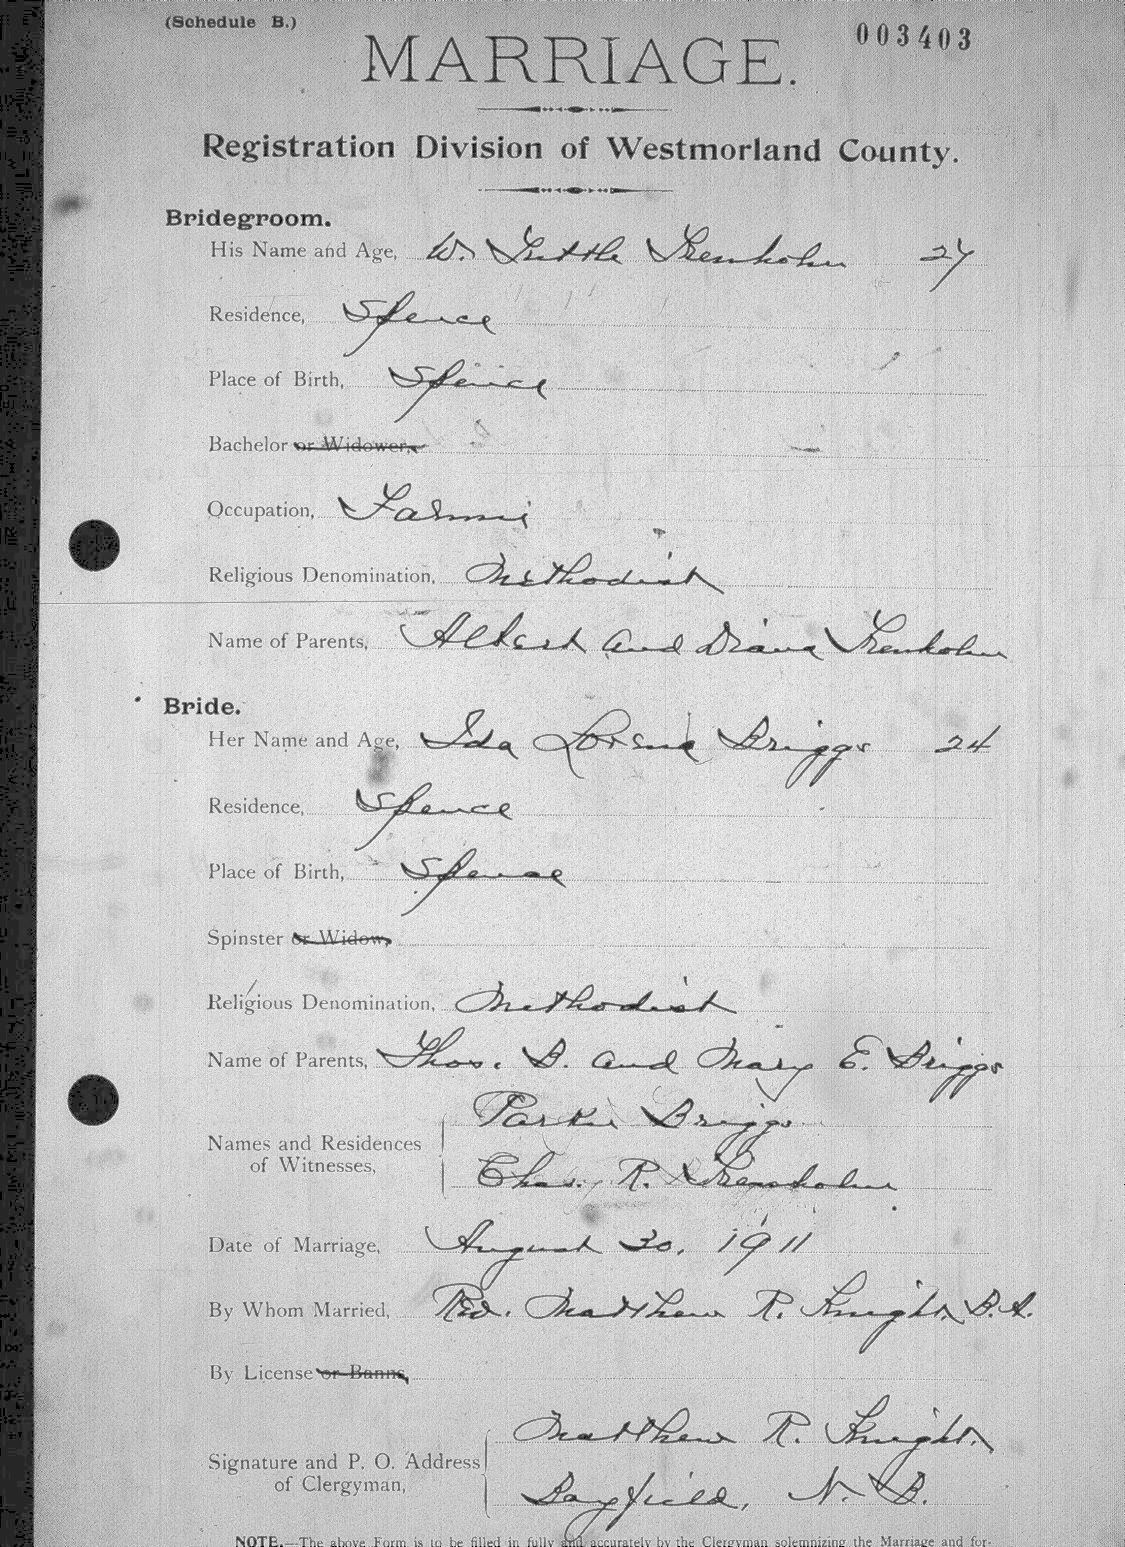 (Schedule B.)
003403
MARRIAGE.
Registration Division of Westmorland County.
Bridegroom.
His Name and Age, W. Tuttle Trenholm 27
Residence, Spence
Place of Birth, Spence
Bachelor or Widower,
Occupation, Farmer
Religious Denomination, Methodist
Name of Parents, Albert and Diana Trenholm
Bride.
Her Name and Age, Ida Lorena Briggs 24
Residence, Spence
Place of Birth, Spence
Spinster or Widow,
Religious Denomination, Methodist
Name of Parents, Thos. B. and Mary E. Briggs
Names and Residences of Witnesses,
Parker Briggs
Chas. R. Trenholm
Date of Marriage, August 30, 1911
By Whom Married, Rev. Matthew R. Knight, B.A.
By License or Banns,
Signature and P. O. Address of Clergyman,
Matthew R. Knight,
Bayfield, N. B.
NOTE.—The above Form is to be filled in fully and accurately by the Clergyman solemnizing the Marriage and for-